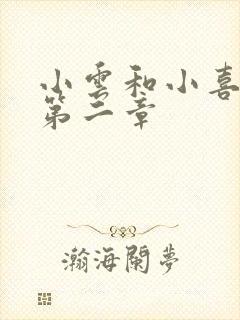 小雲和小喜
第二章
瀚海闌夢